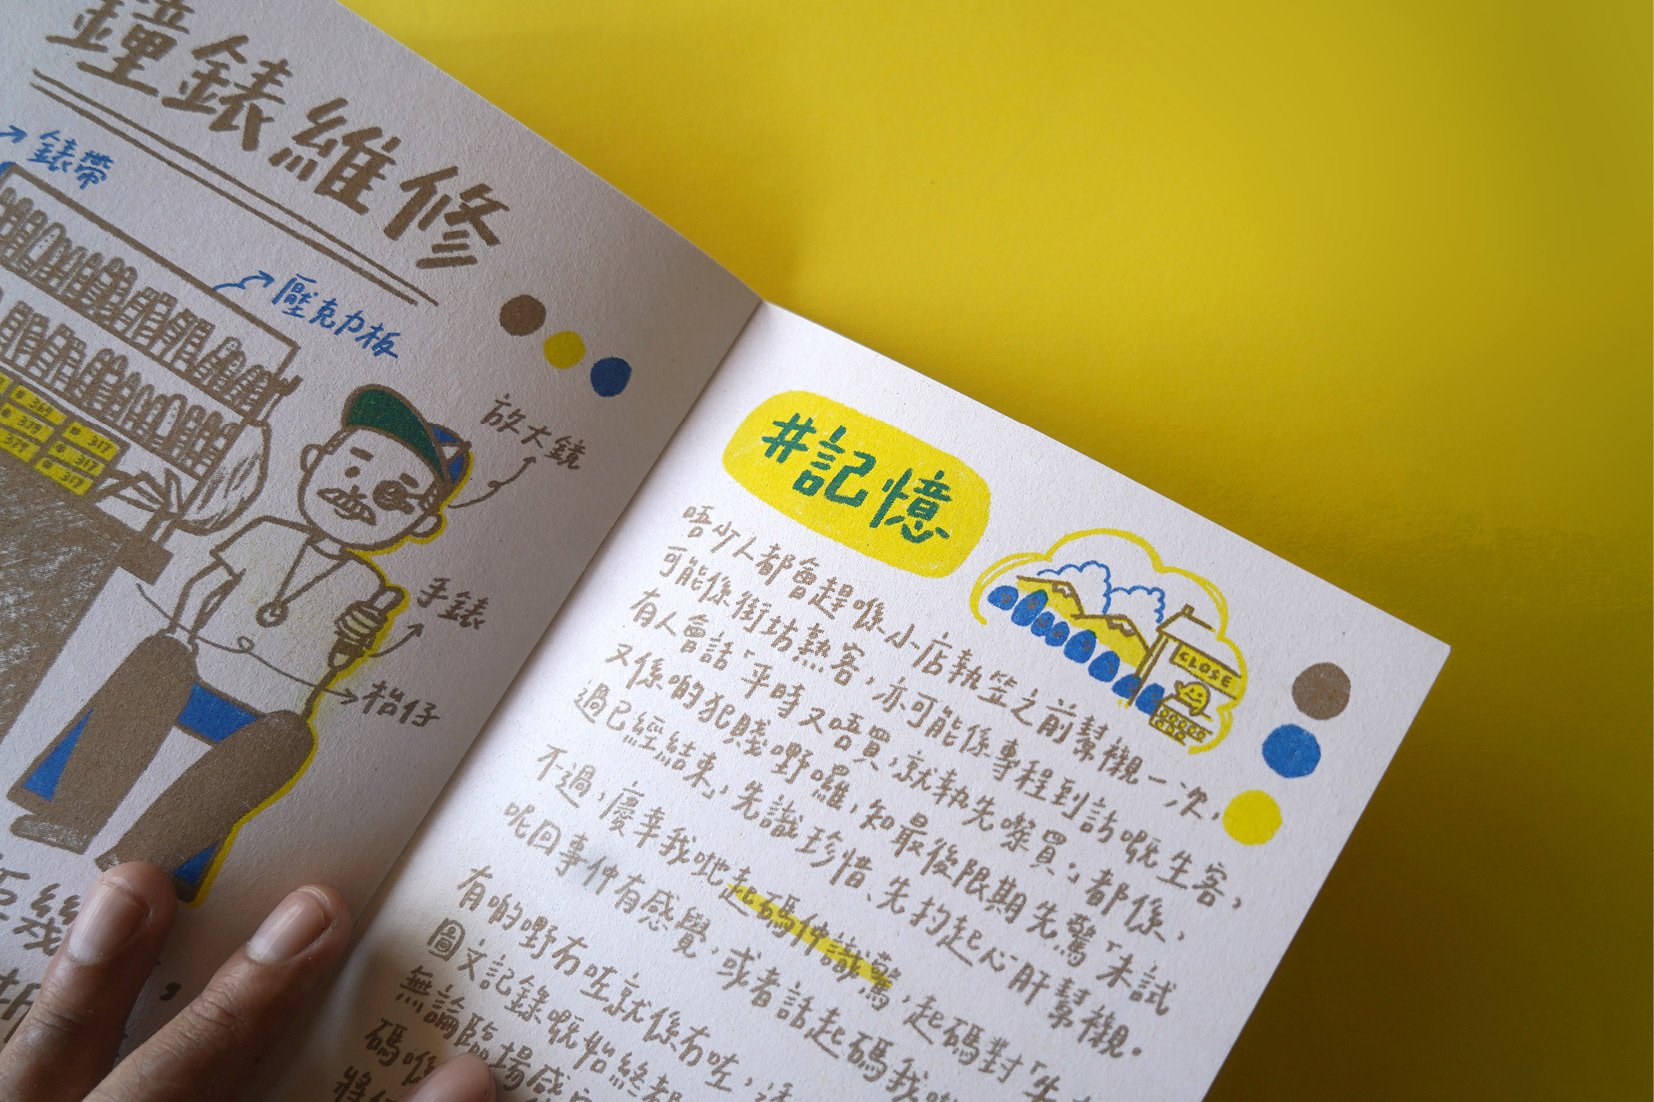 鐘錶維修
錶帶
壓克力板
放大鏡
369
379
317
379
317
317
手錶
枱仔
幾
#記憶
CLOSE
唔少人都會趕喺小店執笠之前幫襯一次，
可能係街坊熟客，亦可能係專程到訪嘅生客，
有人會話「平時又唔買，就執先嚟買」；都係，
又係啲犯賤嘢囉，知最後限期先驚「未試
過已經結束」，先識珍惜、先扚起心肝幫襯。
不過，慶幸我哋起碼仲識驚，起碼對「失
呢回事仲有感覺，或者話起碼我哋
有啲嘢冇咗就係冇咗，
圖文記錄嘅始終都
無論臨場感
碼喺
將